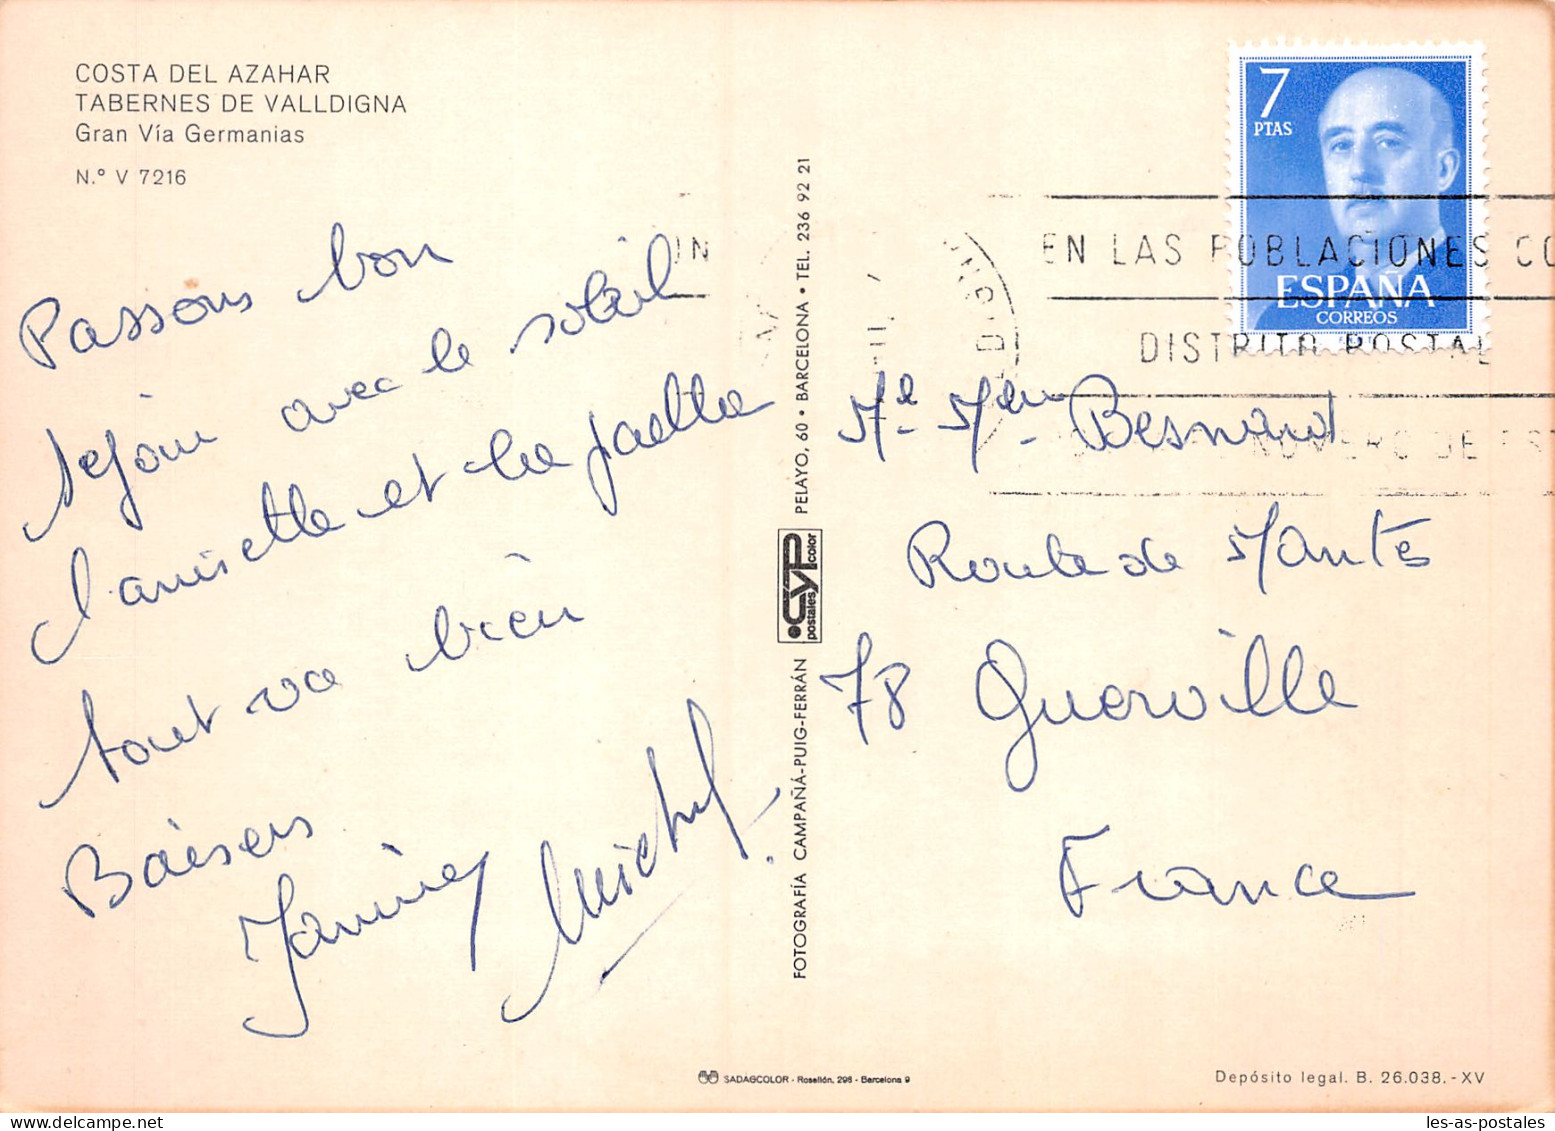 COSTA DEL AZAHAR
TABERNES DE VALLDIGNA
Gran Vía Germanias
N.º V 7216
Passons bon
séjour avec le soleil
l'anisette et la paella
tout va bien
Baisers
Janine Michel
FOTOGRAFÍA CAMPAÑÁ-PUIG-FERRÁN
CYP color
postales
PELAYO, 60 • BARCELONA • TEL. 236 92 21
7
PTAS
ESPAÑA
CORREOS
EN LAS POBLACIONES CO
DISTRITO POSTAL
NUMERO DE EST
Mr Mme Besnard
Route de Mantes
78 Guerville
France
SADAGCOLOR - Rosellón, 298 - Barcelona 9
Depósito legal. B. 26.038.-XV
les-as-postales